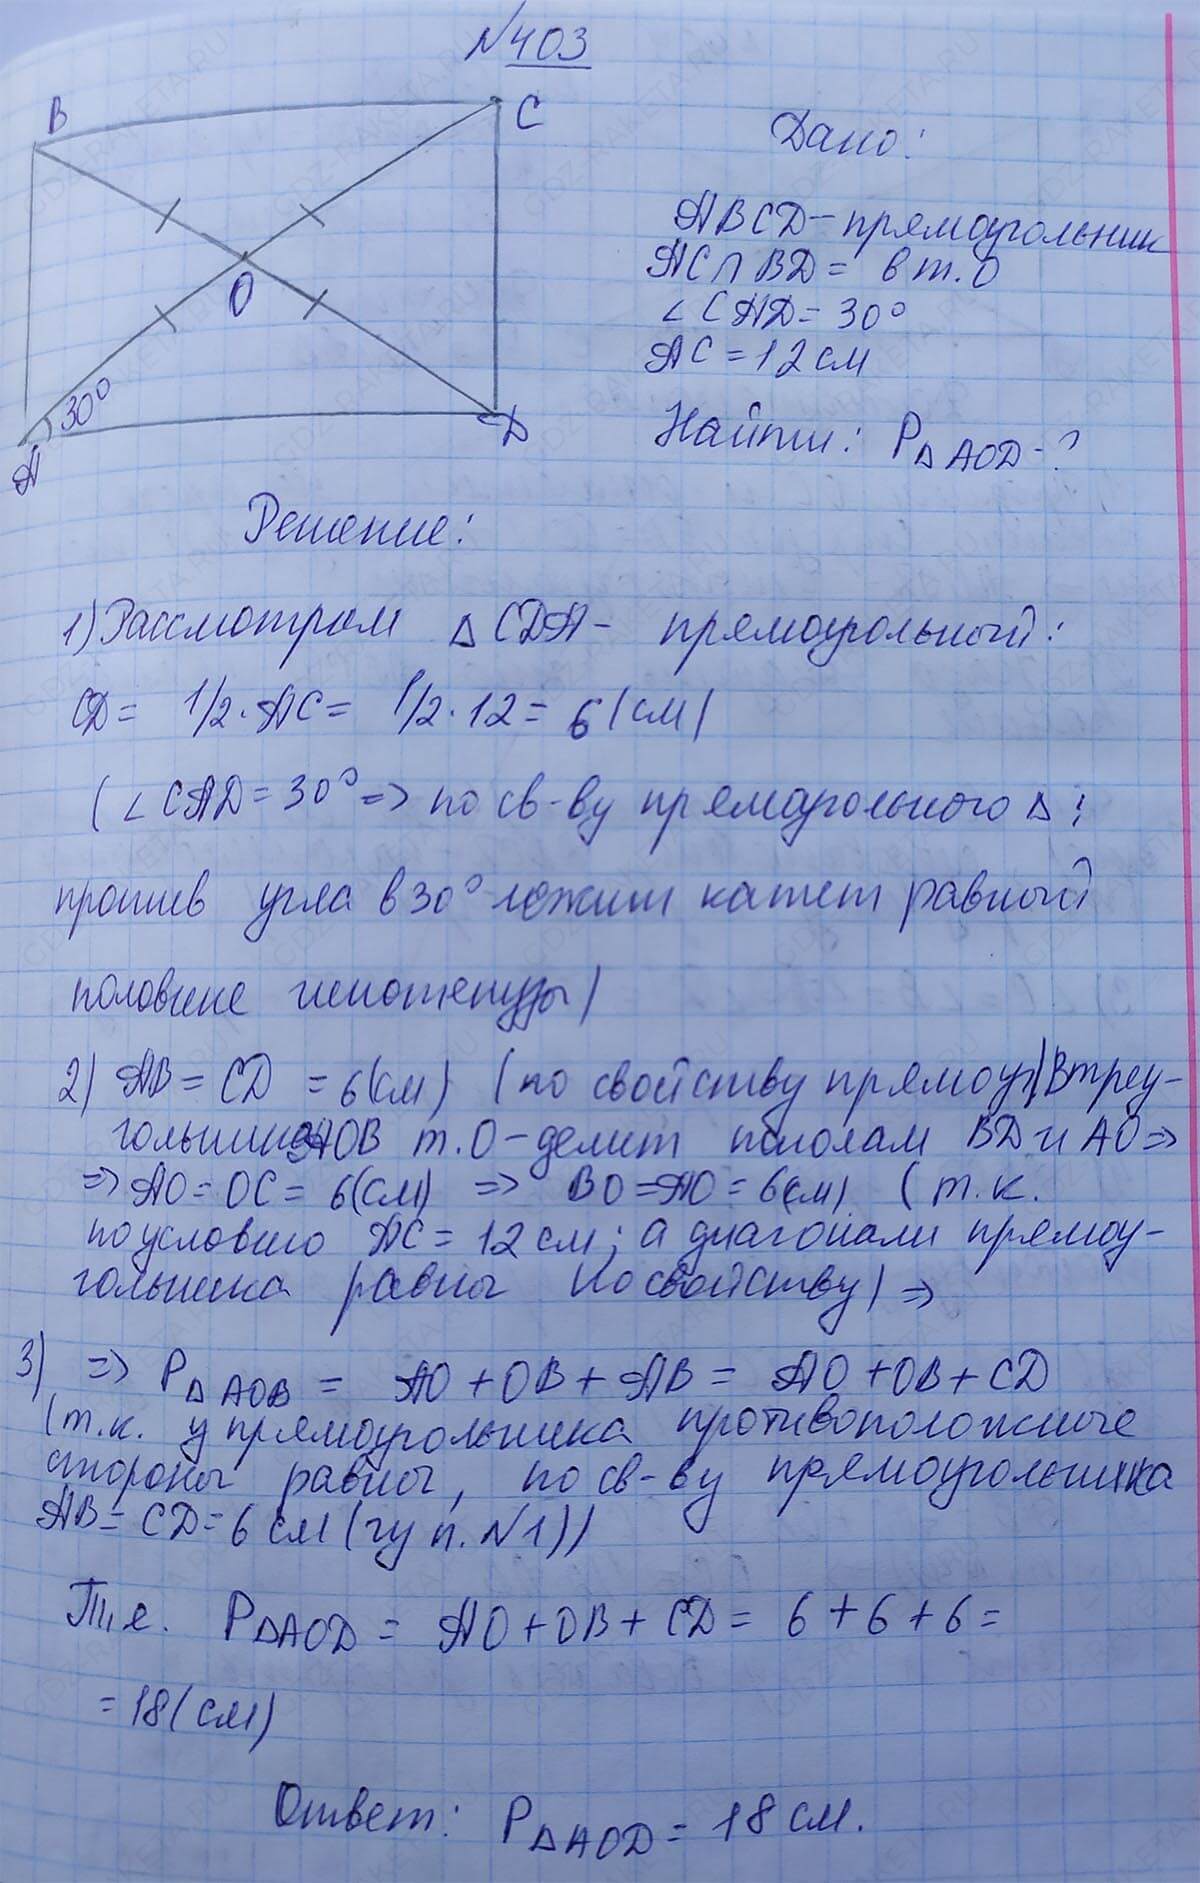 №403
B
C
O
30°
A
D
Дано:
ABCD - прямоугольник
AC ∩ BD = в т. O
∠CAD = 30°
AC = 12 см
Найти: P△AOD - ?
Решение:
1) Рассмотрим △CDA - прямоугольный:
CD = 1/2 · AC = 1/2 · 12 = 6 (см)
(∠CAD = 30° => по св-ву прямоугольного △:
против угла в 30° лежит катет равный
половине гипотенузы)
2) AB = CD = 6(см) (по свойству прямоуг) В треу-
гольнике AOB т. O - делит пополам BD и AO =>
=> AO = OC = 6(см) => BO = AO = 6(см) (т.к.
по условию AC = 12 см; а диагонали прямоу-
гольника равны по свойству) =>
3) => P△AOB = AO + OB + AB = AO + OB + CD
(т.к. у прямоугольника противоположные
стороны равны, по св-ву прямоугольника
AB = CD = 6 см (из п. №1))
Т.е. P△AOD = AO + OB + CD = 6 + 6 + 6 =
= 18 (см)
Ответ: P△AOD = 18 см.